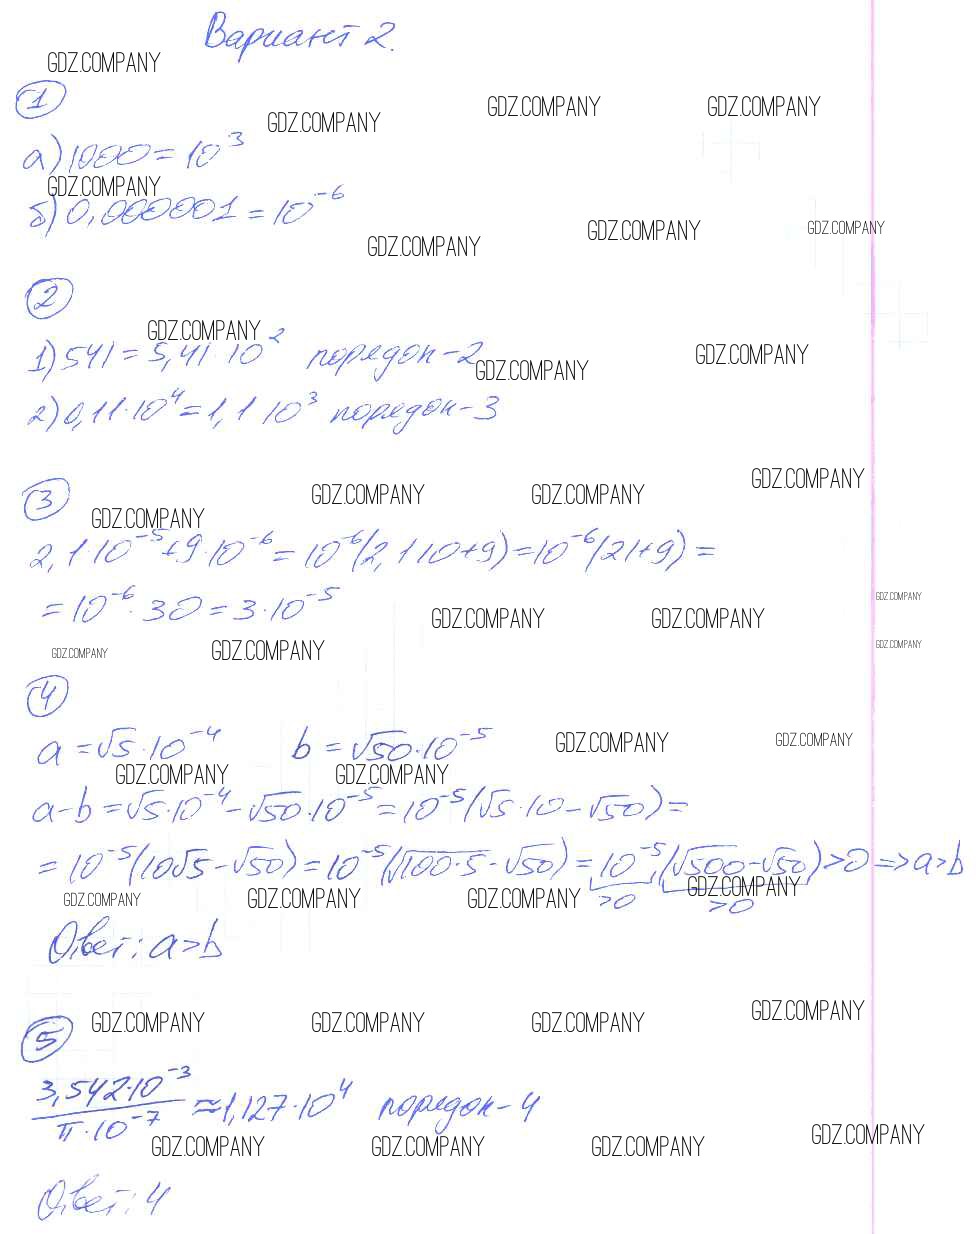 Вариант 2.
GDZ.COMPANY
1
GDZ.COMPANY GDZ.COMPANY GDZ.COMPANY
а) 1000 = 10^3
GDZ.COMPANY
б) 0,000001 = 10^-6
GDZ.COMPANY GDZ.COMPANY GDZ.COMPANY
2
GDZ.COMPANY
1) 541 = 5,41·10^2 порядок - 2
GDZ.COMPANY GDZ.COMPANY
2) 0,11·10^4 = 1,1·10^3 порядок - 3
3
GDZ.COMPANY GDZ.COMPANY GDZ.COMPANY
GDZ.COMPANY
2,1·10^-5 + 9·10^-6 = 10^-6(2,1·10+9) = 10^-6(21+9) =
= 10^-6·30 = 3·10^-5
GDZ.COMPANY GDZ.COMPANY GDZ.COMPANY
GDZ.COMPANY GDZ.COMPANY GDZ.COMPANY
4
a = √5·10^-4 b = √50·10^-5
GDZ.COMPANY GDZ.COMPANY
GDZ.COMPANY GDZ.COMPANY
a-b = √5·10^-4 - √50·10^-5 = 10^-5(√5·10 - √50) =
= 10^-5(10√5 - √50) = 10^-5(√100·5 - √50) = 10^-5·(√500 - √50) > 0 => a>b
>0 >0
GDZ.COMPANY GDZ.COMPANY GDZ.COMPANY GDZ.COMPANY
Ответ: a>b
GDZ.COMPANY GDZ.COMPANY GDZ.COMPANY GDZ.COMPANY
5
3,542·10^-3 / π·10^-7 ≈ 1,127·10^4 порядок - 4
GDZ.COMPANY GDZ.COMPANY GDZ.COMPANY GDZ.COMPANY
Ответ: 4